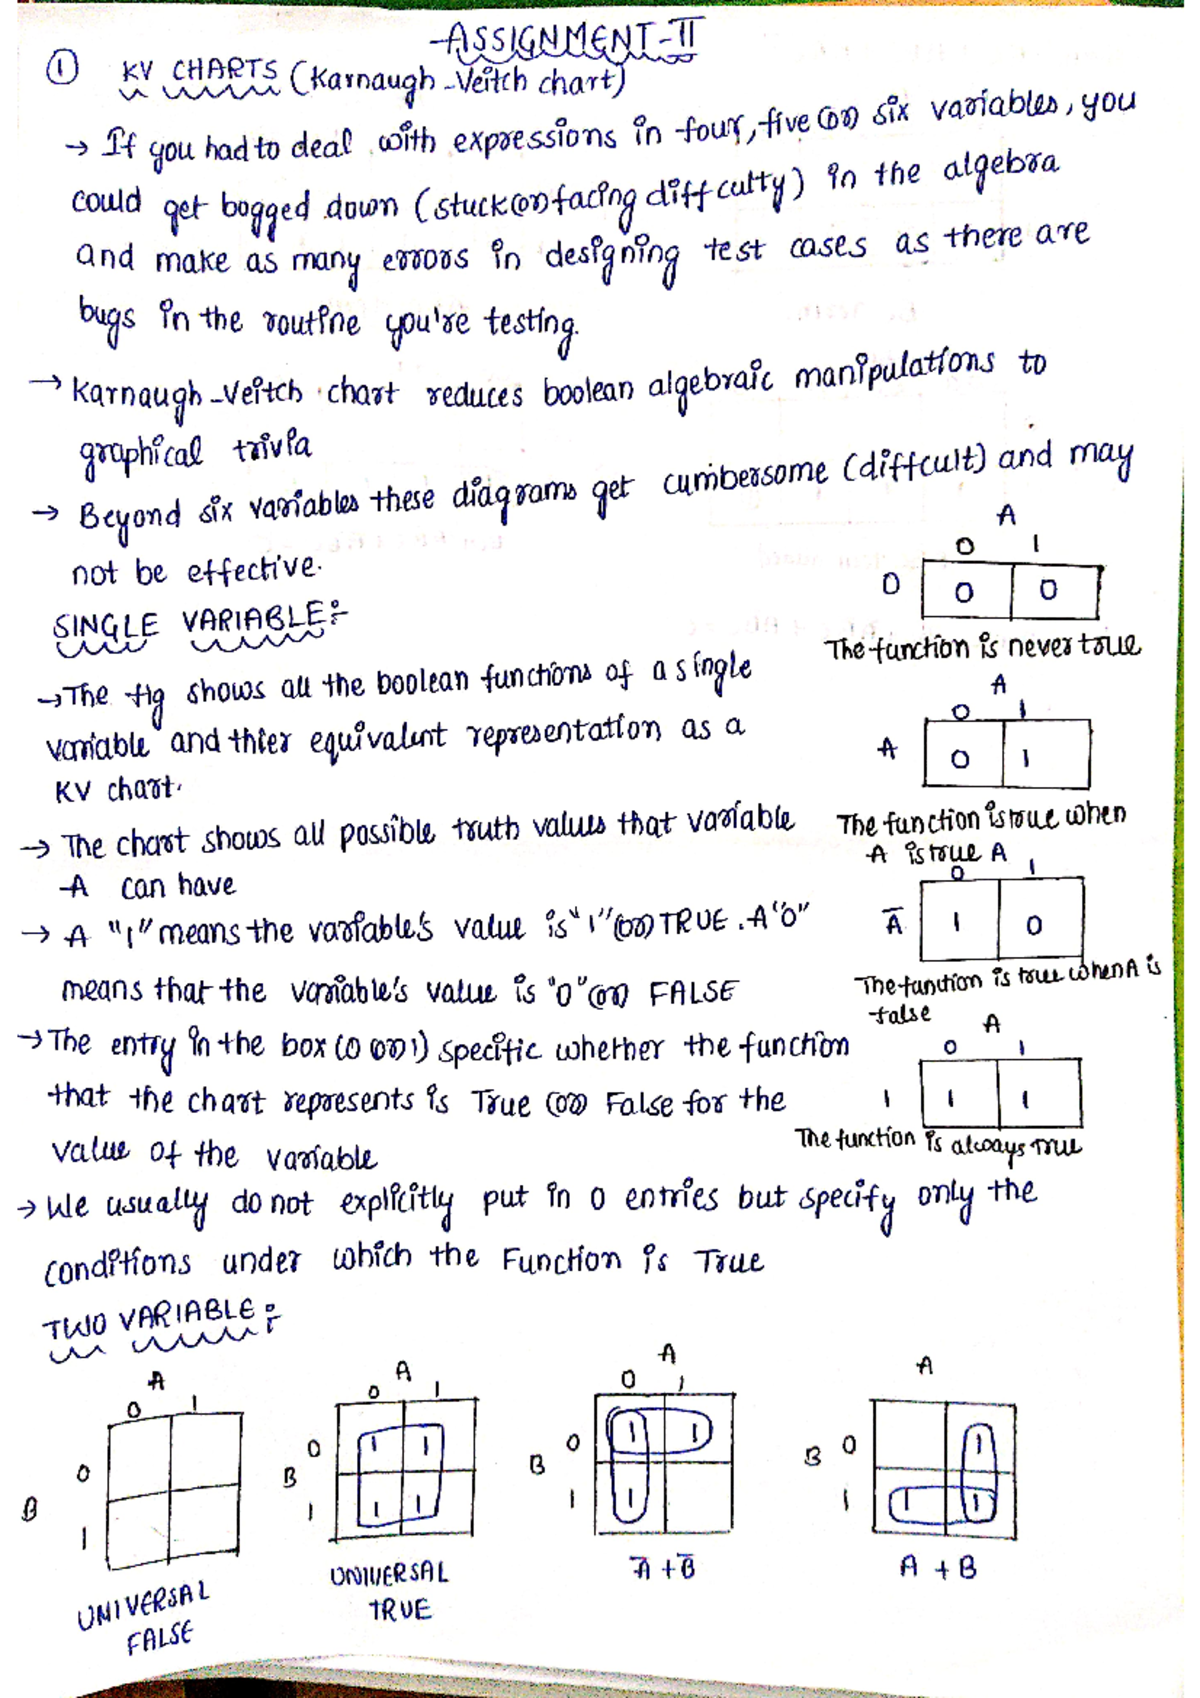 ASSIGNMENT-II
① KV CHARTS (Karnaugh-Veitch chart)
→ If you had to deal with expressions in four, five (or) six variables, you
could get bogged down (stuck (or) facing diffcutty) in the algebra
and make as many errors in designing test cases as there are
bugs in the routine you're testing.
→ Karnaugh-Veitch chart reduces boolean algebraic manipulations to
graphical trivia
→ Beyond six variables these diagrams get cumbersome (diffcult) and may
not be effective.
A
0 1
0 0 0
The function is never true
SINGLE VARIABLE:-
→ The fig shows all the boolean functions of a single
variable and thier equivalent representation as a
KV chart.
A
0 1
A 0 1
The function is true when
A is true
→ The chart shows all possible truth values that variable
A can have
→ A "1" means the variable's value is "1" (or) TRUE. A "0"
means that the variable's value is "0" (or) FALSE
A
0 1
A̅ 1 0
The function is true when A is
false
→ The entry in the box (0 or 1) specific whether the function
that the chart represents is True (or) False for the
value of the variable
A
0 1
1 1 1
The function is always True
→ We usually do not explicitly put in 0 entries but specify only the
conditions under which the Function is True
TWO VARIABLE:-
A
0 1
B
0
1
UNIVERSAL
FALSE
A
0 1
B
0 1 1
1 1 1
UNIVERSAL
TRUE
A
0 1
B
0 1 1
1 1
A̅ + B̅
A
B
0 1
1 1 1
A + B